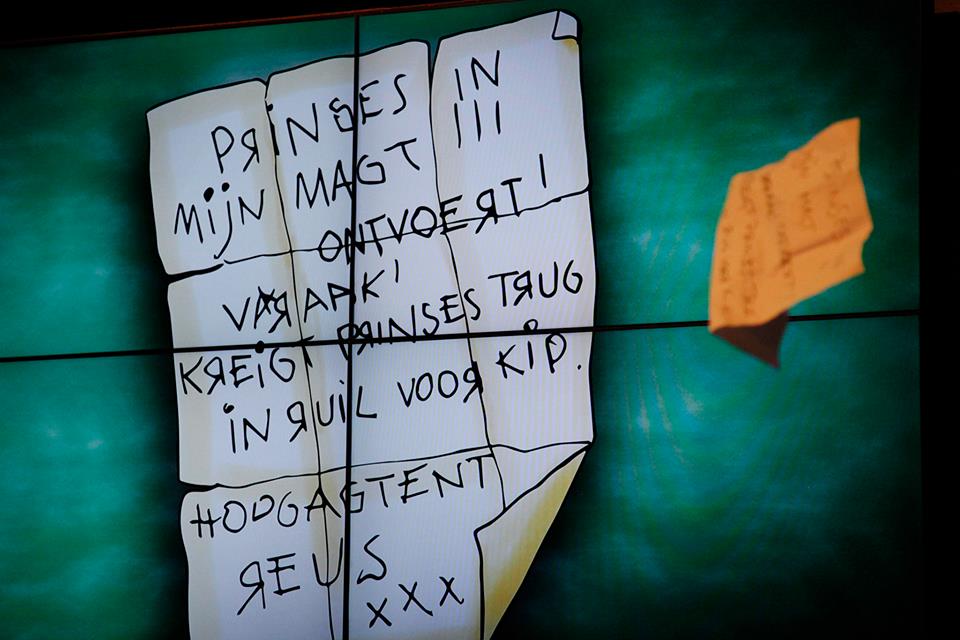 PRINSES IN
MIJN MAGT !!!
ONTVOERT!
VARAAK!
KREIGT PRINSES TRUG
IN RUIL VOOR KIP.
HOOGAGTENT
REUS
XXX